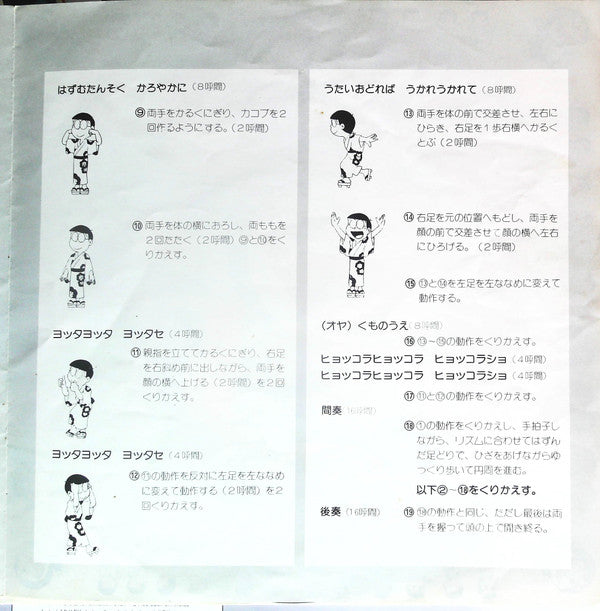 はずむたんそく　かろやかに（8呼間）
⑨両手をかるくにぎり、カコブを2
回作るようにする。（2呼間）
⑩両手を体の横におろし、両ももを
2回たたく（2呼間）⑨と⑩をく
りかえす。
ヨッタヨッタ　ヨッタセ（4呼間）
⑪親指を立ててかるくにぎり、右足
を右斜め前に出しながら、両手を
顔の横へ上げる（2呼間）を2回
くりかえす。
ヨッタヨッタ　ヨッタセ（4呼間）
⑫⑪の動作を反対に左足を左ななめ
に変えて動作する（2呼間）を2
回くりかえす。
うたいおどれば　うかれうかれて（8呼間）
⑬両手を体の前で交差させ、左右に
ひらき、右足を1歩右横へかるく
とぶ（2呼間）
⑭右足を元の位置へもどし、両手を
顔の前で交差させて顔の横へ左右
にひろげる。（2呼間）
⑮⑬と⑭を左足を左ななめに変えて
動作する。
（オヤ）くものうえ（8呼間）
⑯⑬～⑮の動作をくりかえす。
ヒョッコラヒョッコラ　ヒョッコラショ（4呼間）
ヒョッコラヒョッコラ　ヒョッコラショ（4呼間）
⑰⑪と⑫の動作をくりかえす。
間奏（16呼間）
⑱①の動作をくりかえし、手拍子し
ながら、リズムに合わせてはずん
だ足どりで、ひざをあげながらゆ
っくり歩いて円周を進む。
以下②～⑱をくりかえす。
後奏（16呼間）
⑲⑱の動作と同じ、ただし最後は両
手を握って頭の上で開き終る。